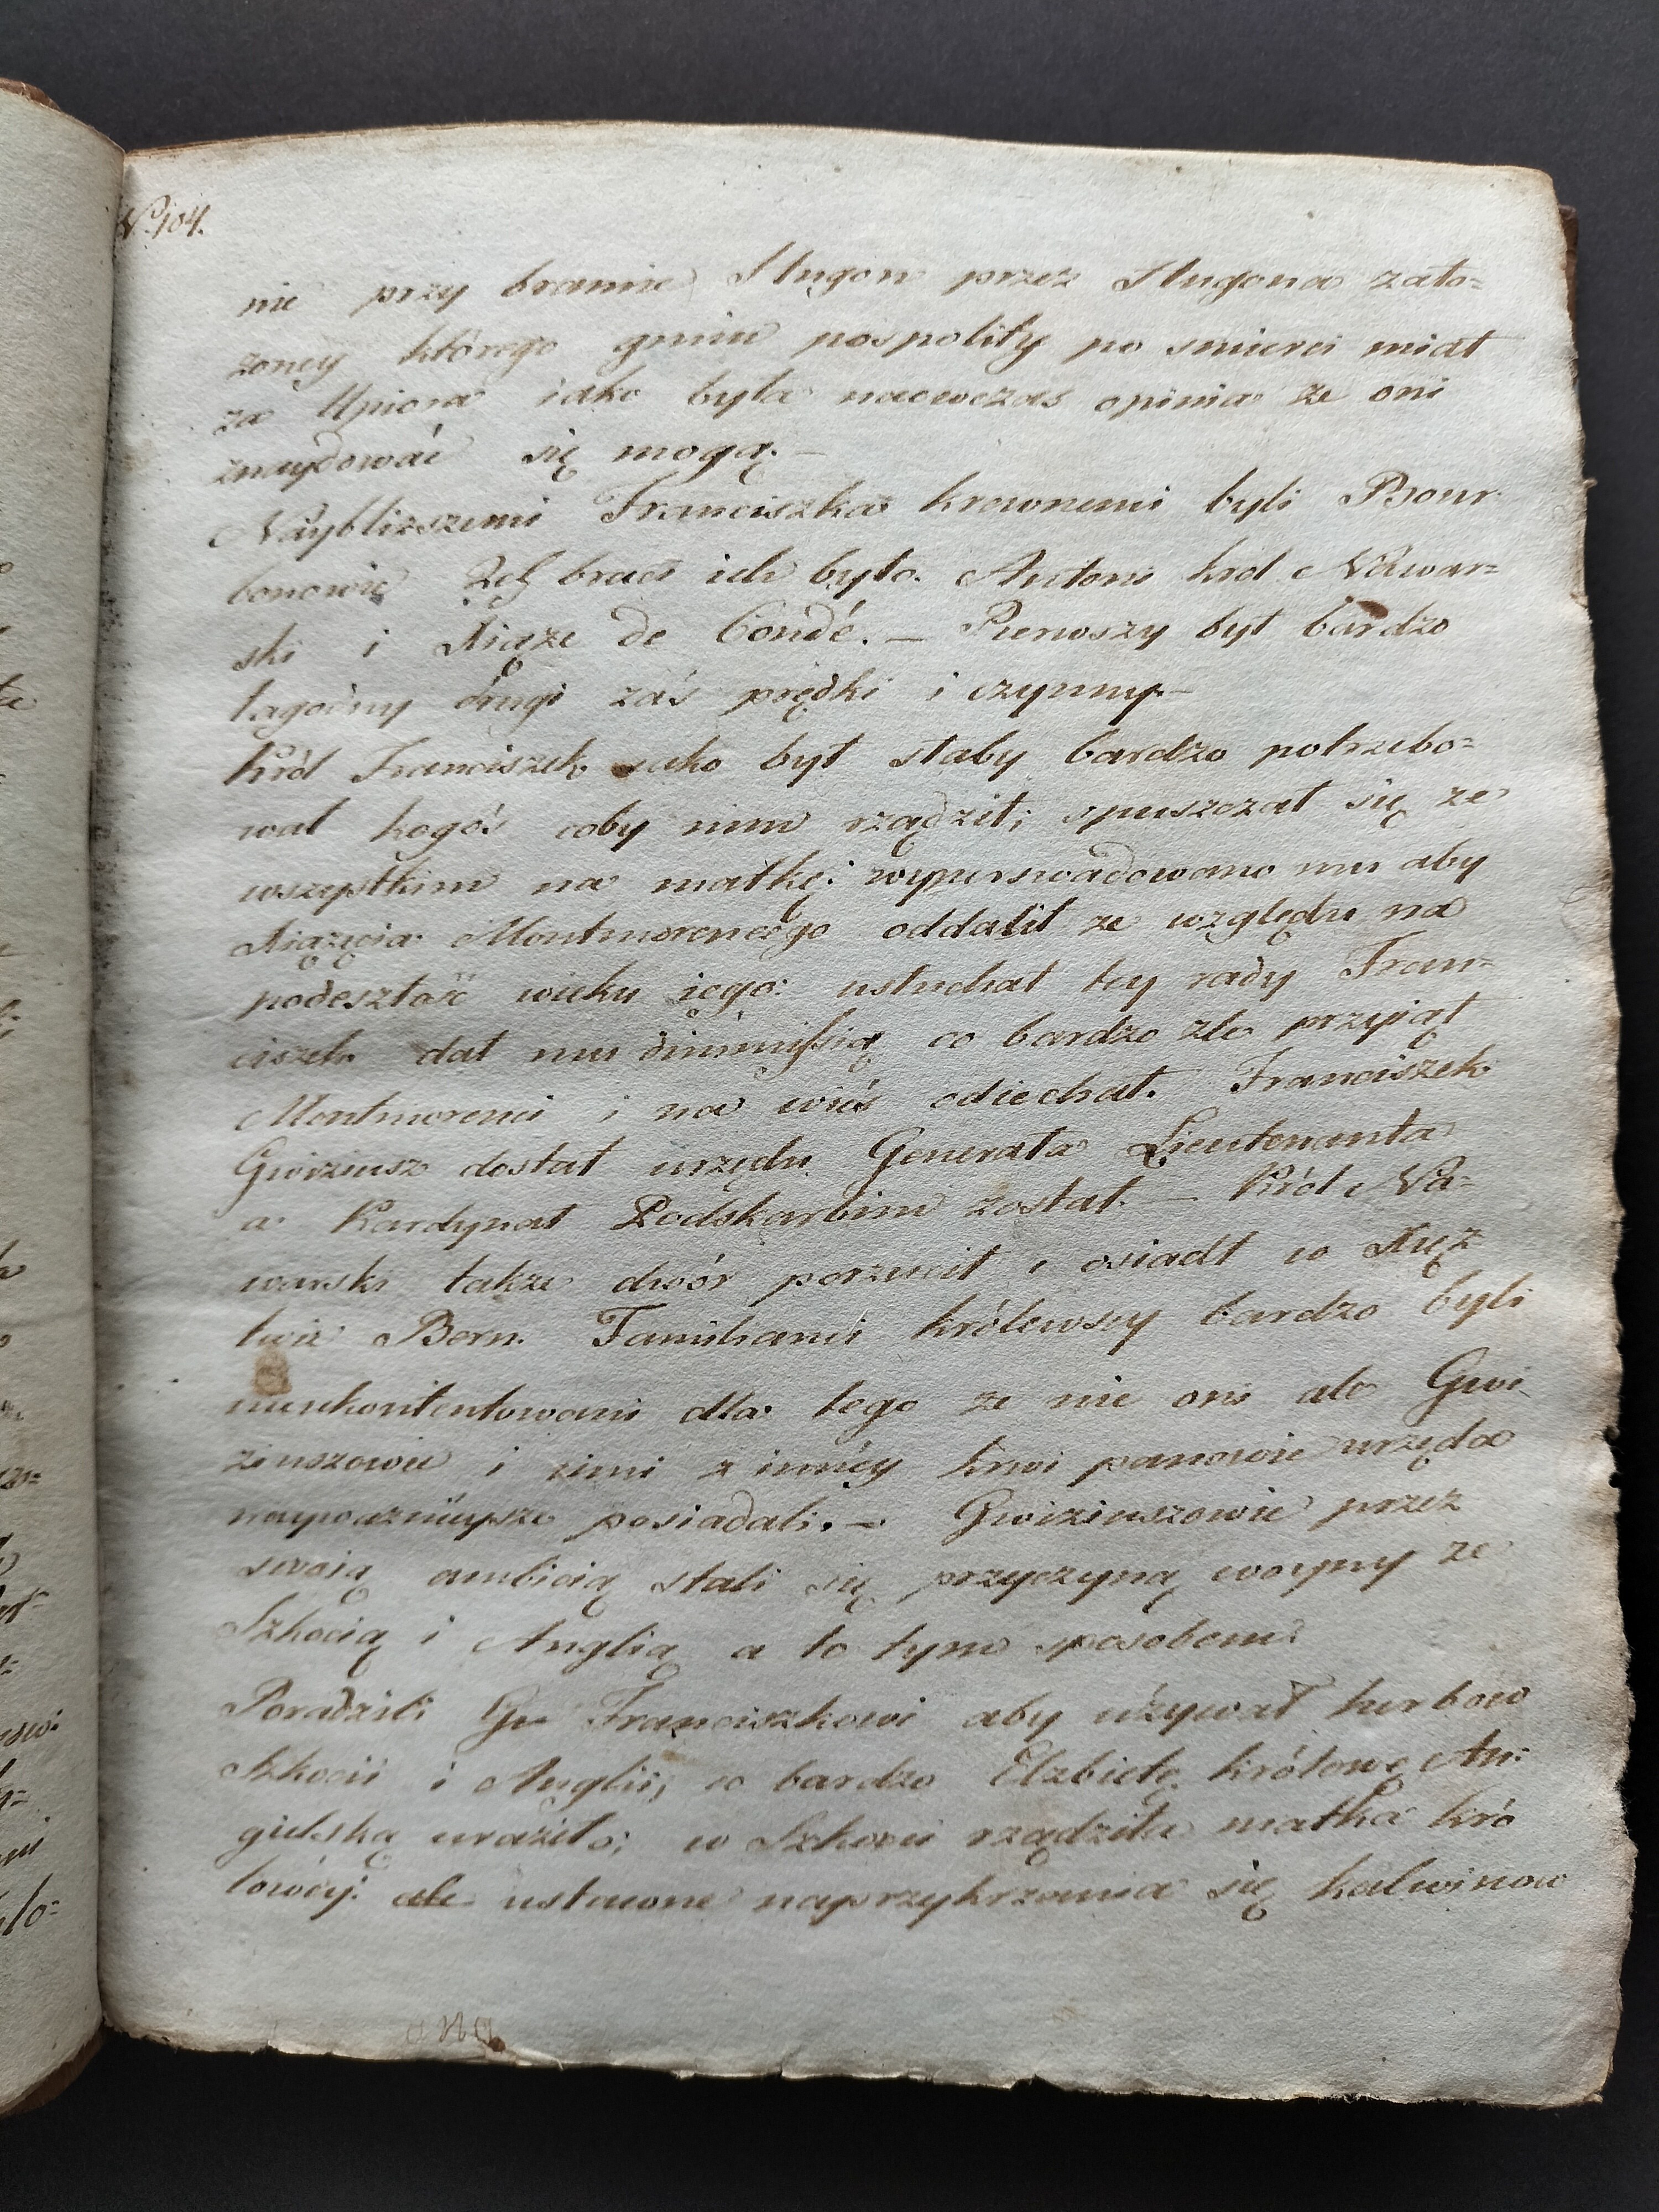 N° 104.
nie przy bramie Hugon przez Hugona zało=
zoney którego gmin pospolity po smierci miał
za Upiora iako była naowczas opinia ze oni
znaydować się mogą. —
Naybliższemi Franciszka krewnemi byli Bour
bonowie 2ch braci ich było. Antoni król Nawar=
ski i Xiąze de Condé. — Pierwszy był bardzo
łagodny drugi zaś prędki i czynny —
Król Franciszek iako był słaby bardzo potrzebo=
wał kogoś coby nim rządził; spuszczał się ze
wszystkim na matkę: wyperswadowano mu aby
Xiążęcia Montmorencego oddalił ze względu na
podeszłość wieku iego: usłuchał tey rady Fran=
ciszek dał mu dimmissią co bardzo zle przyiął
Montmorenci i na wieś odiechał. Franciszek
Gwiziusz dostał urzędu Generała Lieutenanta
a Kardynał Podskarbim został. — Król Na=
warski także dwór porzucił i osiadł w Xięz
twie Bern. Familianci królewscy bardzo byli
nieukontentowani dla tego ze nie oni ale Gwi
ziuszowie i inni z innéy krwi panowie urzęda
naypoważnieysze posiadali. — Gwiziuszowie przez
swoią ambicią stali się przyczyną woyny ze
Szkocią i Anglią a to tym sposobem
Poradzili Gw Franciszkowi aby używał herbow
Szkocii i Anglii, co bardzo Elzbietę królowę An=
gielską uraziło; w Szkocii rządziła matka kró
lowéy: ale ustawne naprzykrzania się kalwinow